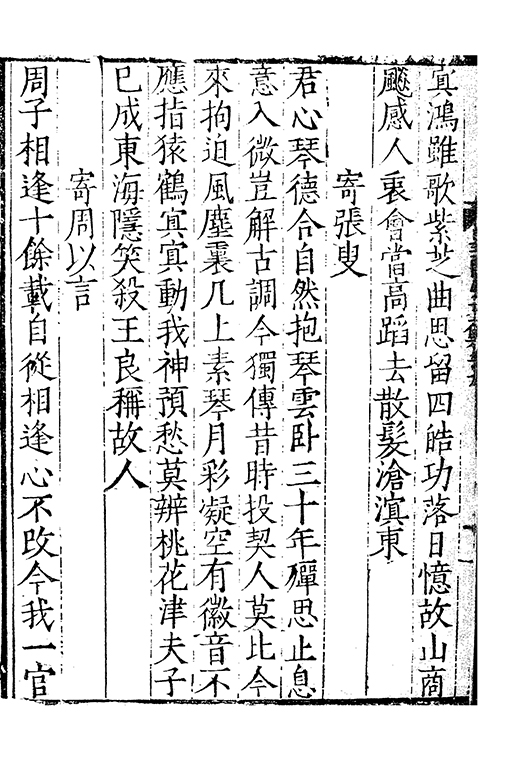 寘鴻雖歌紫芝曲思留四皓功落日憶故山商
飈感人衷會當高蹈去散髮滄溟東
寄張叟
君心琴德合自然抱琴雲卧三十年殫思止息
意入微豈解古調今獨傳昔時投契人莫比今
來拘迫風塵裏几上素琴月彩凝空有徽音不
應指猿鶴寘寘動我神預愁莫辨桃花津夫子
已成東海隱笑殺王良稱故人
寄周以言
周子相逢十餘載自從相逢心不改今我一官